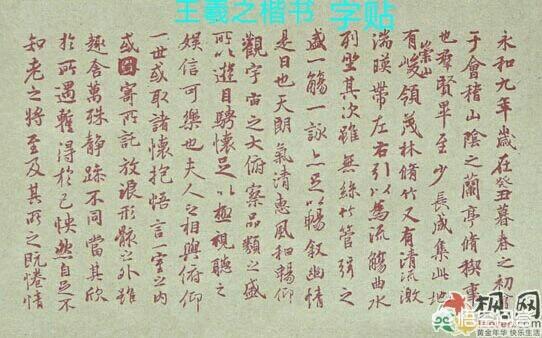 王羲之楷书 字贴
永和九年歲在癸丑暮春之初會
于會稽山陰之蘭亭脩稧事
也羣賢畢至少長咸集此地
有崇山峻領茂林脩竹又有清流激
湍暎帶左右引以為流觴曲水
列坐其次雖無絲竹管弦之
盛一觴一詠亦足以暢敘幽情
是日也天朗氣清惠風和暢仰
觀宇宙之大俯察品類之盛
所以遊目騁懷足以極視聽之
娛信可樂也夫人之相與俯仰
一世或取諸懷抱悟言一室之內
或因寄所託放浪形骸之外雖
趣舍萬殊静躁不同當其欣
於所遇暫得於己怏然自足不
知老之將至及其所之既惓情
枫网
黄金年华 快乐生活
悟空问答